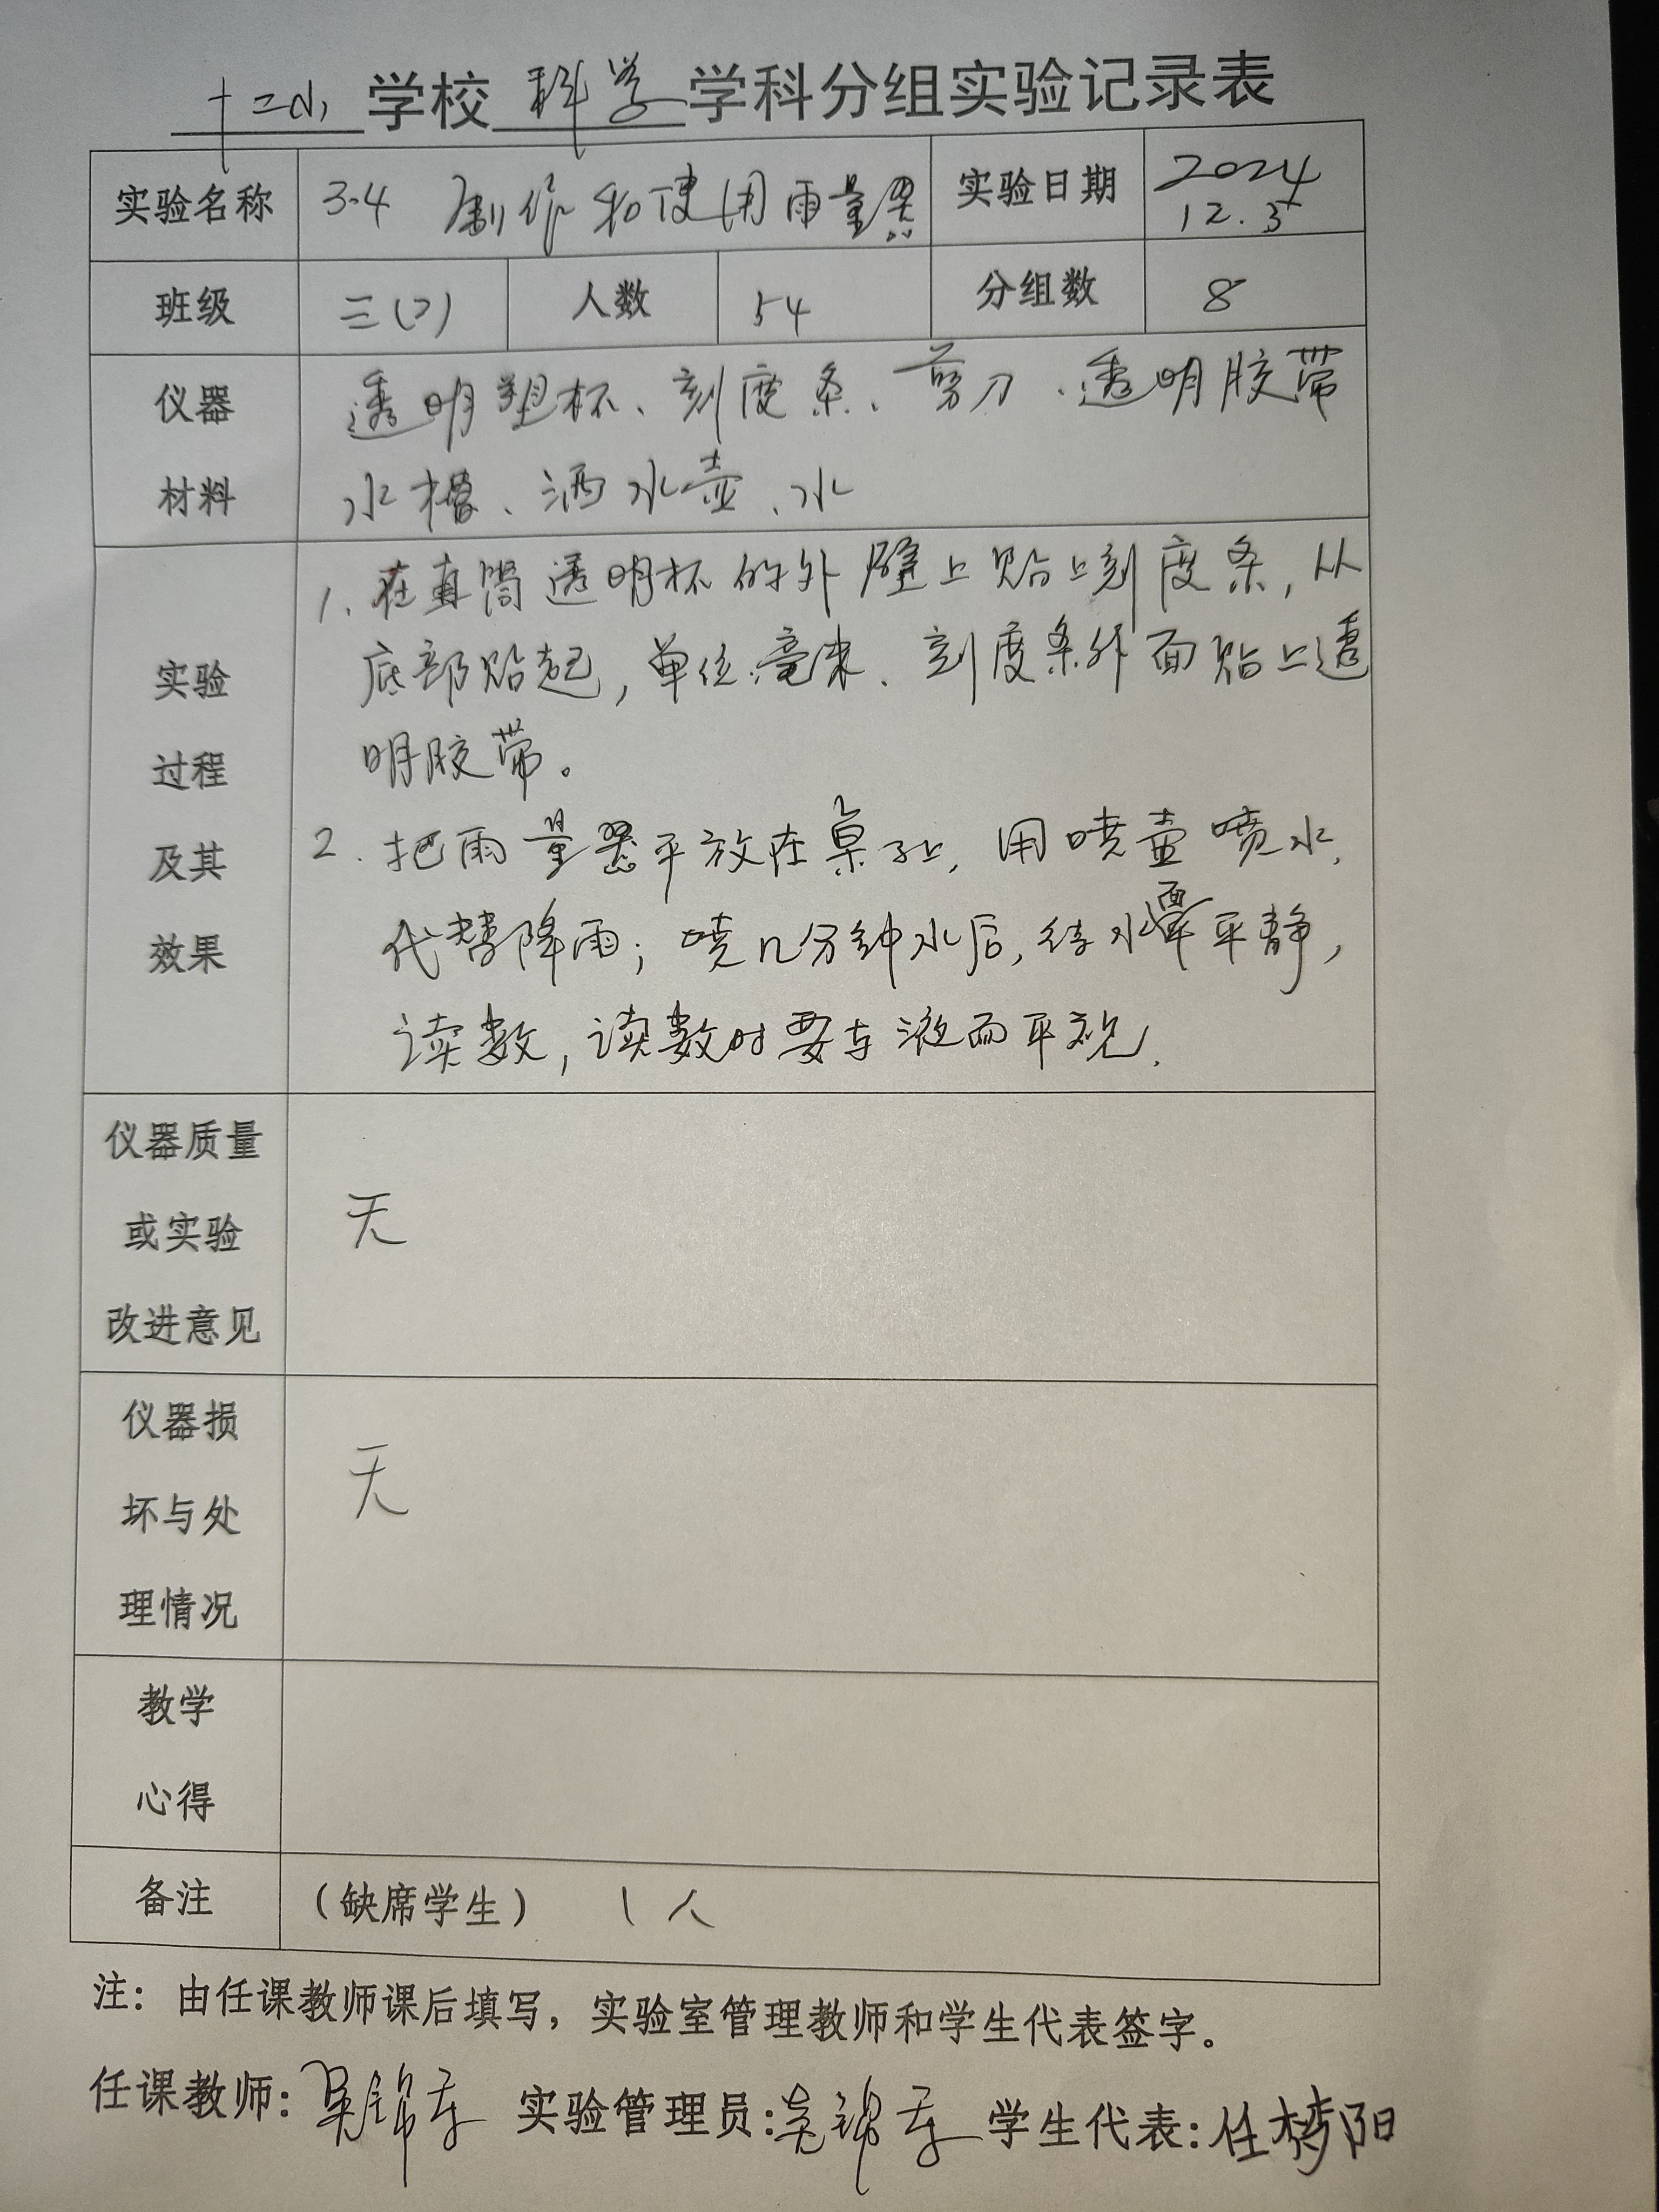 十二小学校科学学科分组实验记录表
实验名称 3.4 制作和使用雨量器 实验日期 2024 12.3
班级 三(2) 人数 54 分组数 8
仪器材料 透明塑杯、刻度条、剪刀、透明胶带
水槽、洒水壶、水
实验过程及其效果
1. 在直筒透明杯的外壁上贴上刻度条,从
底部贴起,单位:毫米、刻度条外面贴上透
明胶带。
2. 把雨量器平放在桌子上,用喷壶喷水,
代替降雨;喷几分钟水后,待水面平静,
读数,读数时要与液面平视.
仪器质量或实验改进意见 无
仪器损坏与处理情况 无
教学心得
备注 (缺席学生) 1人
注:由任课教师课后填写,实验室管理教师和学生代表签字。
任课教师: 实验管理员: 学生代表:任梦阳